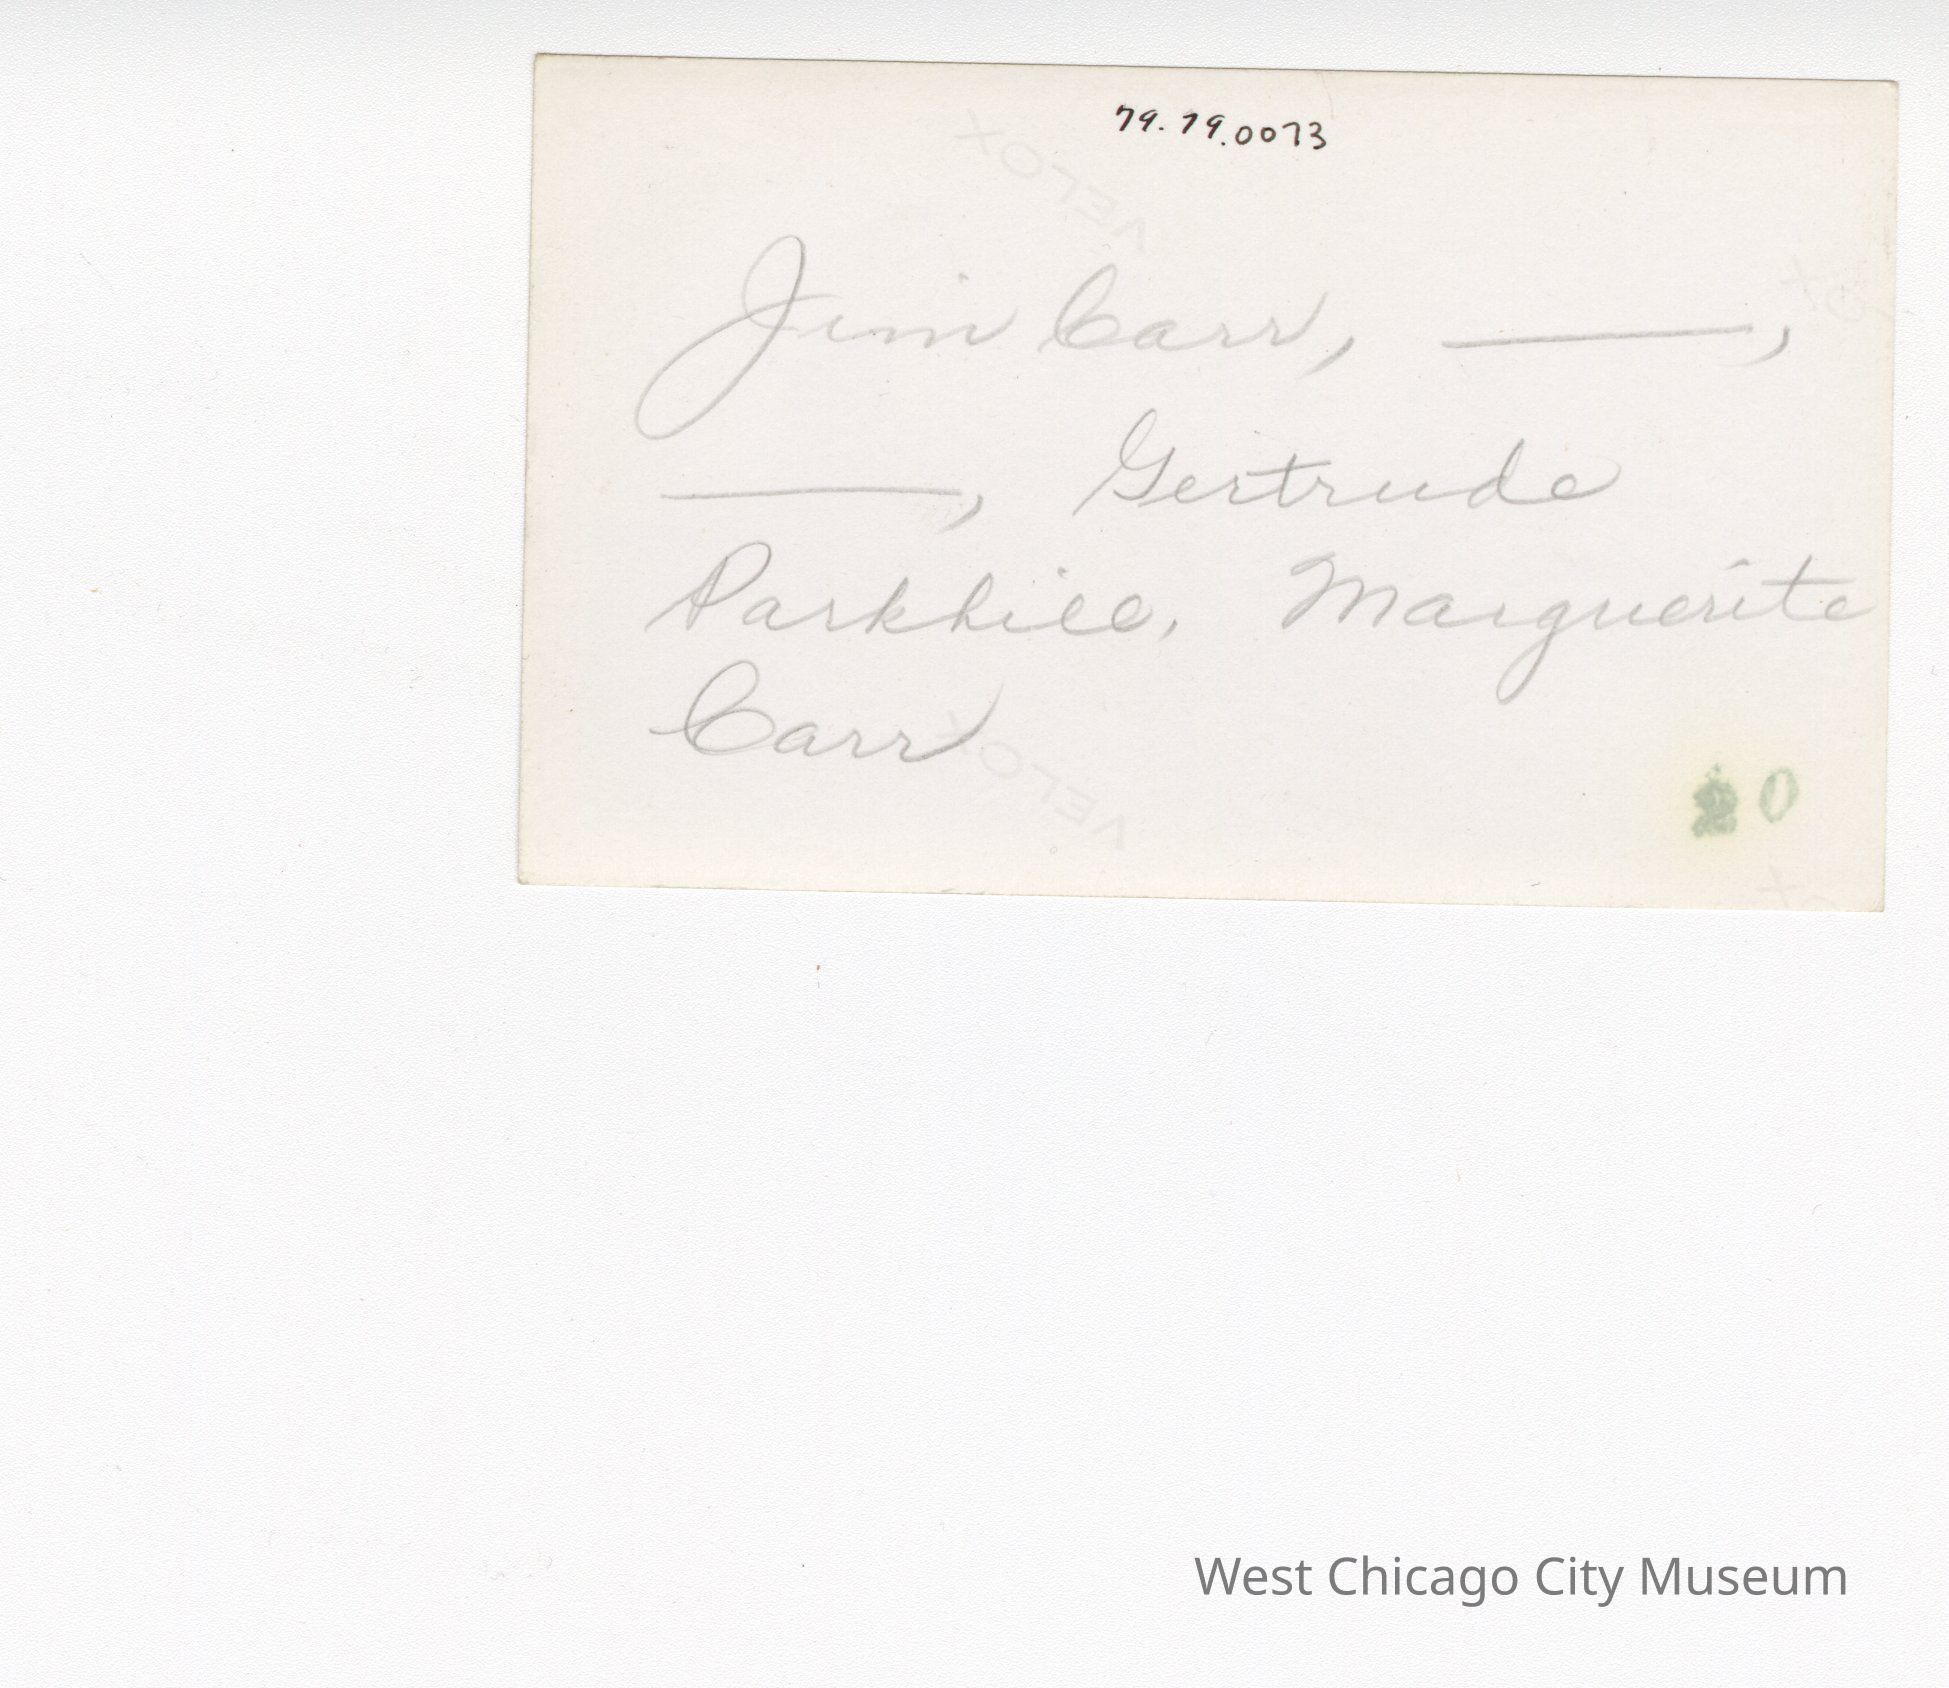 79.79.0073
VELOX
Jim Carr, ———,
———, Gertrude
Parkhill, Marguerite
Carr
VELOX
20
West Chicago City Museum